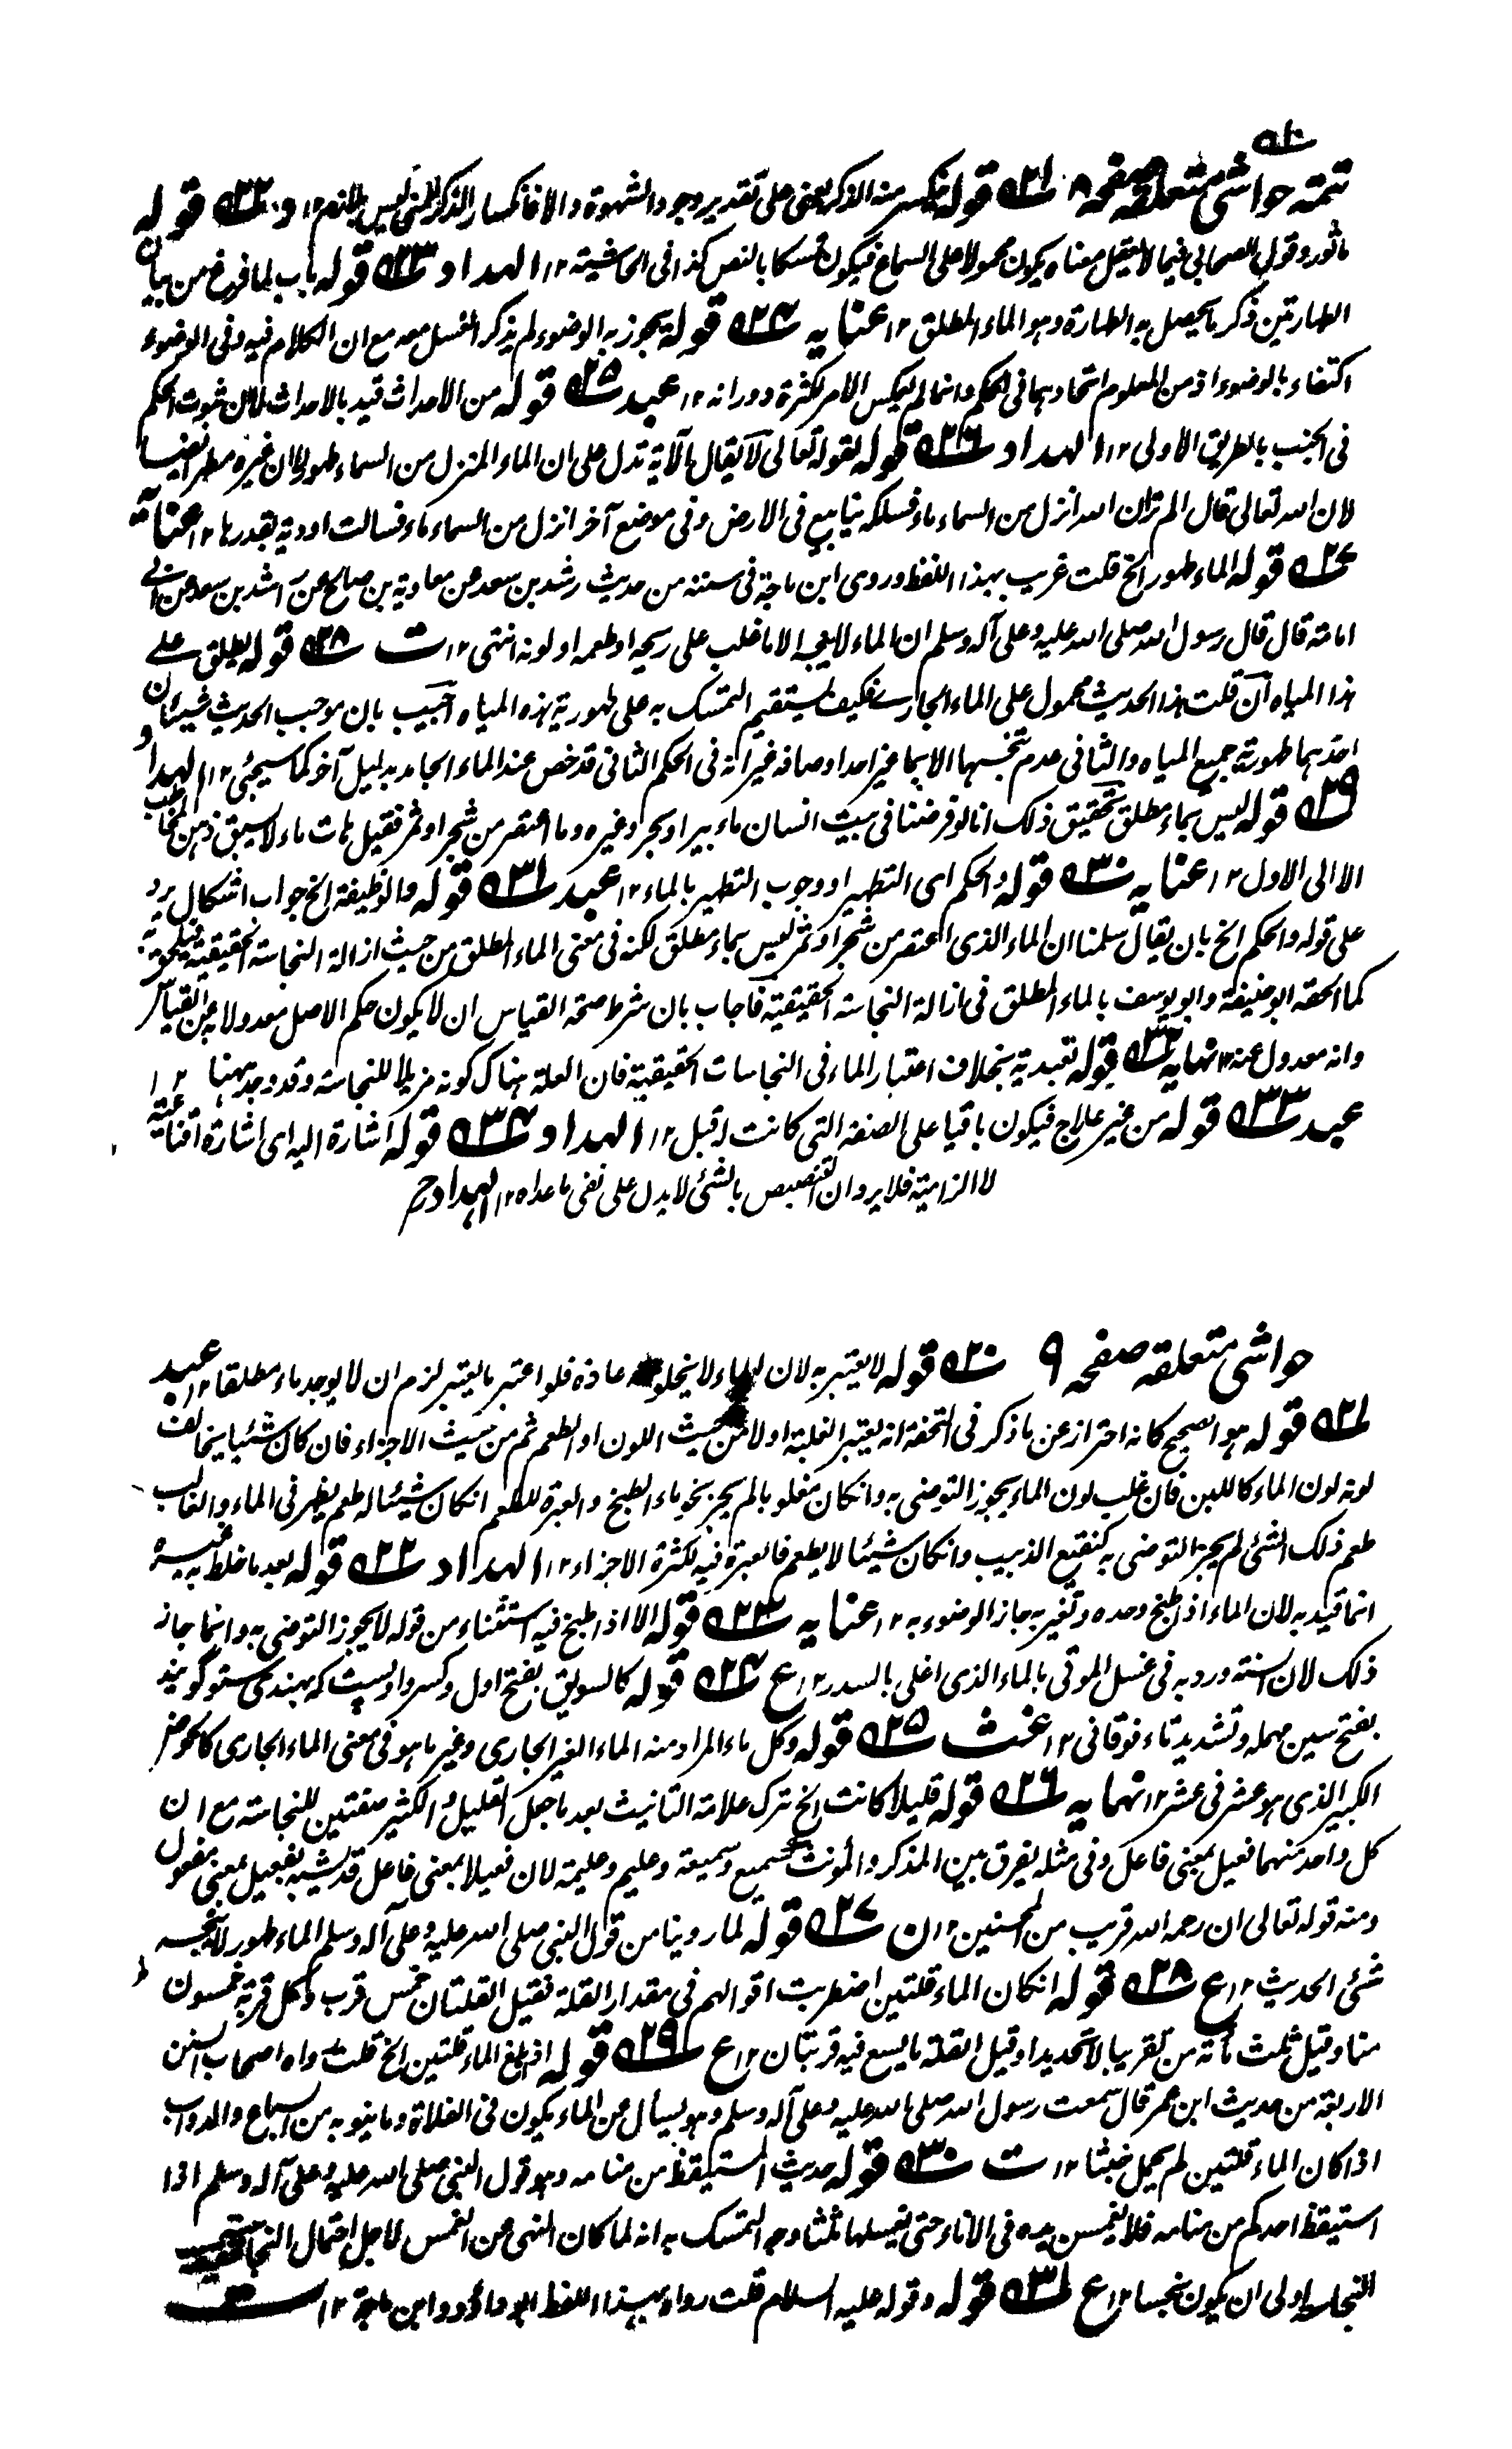 تتمة حواشی متعلقه صفحه ۸ ۲۱ قوله فينكسر منه الذكر يعنی علی تقدير وجود الشهوة والا فانكسار الذكر للمنی ليس بلازم ۱۲ و ۲۲ قوله
ماثور وقول الصحابی فيما لا يعقل معناه يكون محمولا علی السماع فيكون تمسكا بالنص كذا فی الحاشية ۱۲ الهداد ۲۳ قوله باب لما فرغ من بيان
الطهارتين ذكر ما يحصل به الطهارة وهو الماء المطلق ۱۲ عنايه ۲۴ قوله يجوز به الوضوء لم يذكر الغسل معه مع ان الكلام فيه وفی الوضوء
اكتفاء بالوضوء اذ من المعلوم اتحادهما فی الحكم وانما لم يعكس الامر لكثرة دورانه ۱۲ عبد ۲۵ قوله من الاحداث قيد بالاحداث لان ثبوت الحكم
فی الجنب بالطريق الاولی ۱۲ الهداد ۲۶ قوله لقوله تعالی لا يقال الآية تدل علی ان الماء المنزل من السماء طهور لا ان غيره مطهر ايضا
لان الله تعالی قال الم تر ان الله انزل من السماء ماء فسلكه ينابيع فی الارض وفی موضع آخر انزل من السماء ماء فسالت اودية بقدرها ۱۲ عناية
۲۷ قوله الماء طهور الخ قلت غريب بهذا اللفظ وروی ابن ماجة فی سننه من حديث رشد بن سعد عن معاوية بن صالح عن راشد بن سعد عن ابی
امامة قال قال رسول الله صلی الله عليه وعلی آله وسلم ان الماء لا ينجسه الا ما غلب علی ريحه او طعمه او لونه انتهی ۱۲ ت ۲۸ قوله يطلق علی
هذا المياه ان قلت هذا الحديث محمول علی الماء الجاری فكيف يستقيم التمسك به علی طهورية هذه المياه اجيب بان موجب الحديث شيئان
احدهما طهورية جميع المياه والثانی عدم تنجسها الا بما غير احد اوصافه غير انه فی الحكم الثانی قد خص عند الماء الجامد بدليل آخر كما سيجئ ۱۲ الهداد
۲۹ قوله ليس بماء مطلق تحقيق ذلك انا لو فرضنا فی بيت انسان ماء بير او بحر وغيره وما اعتصر من شجر او ثمر فقيل هات ماء لا يسبق ذهن المخاطب
الا الی الاول ۱۲ عنايه ۳۰ قوله والحكم ای التطهير او وجوب التطهير بالماء ۱۲ عبد ۳۱ قوله والوظيفة الخ جواب اشكال يرد
علی قوله والحكم الخ بان يقال سلمنا ان الماء الذی اعتصر من شجر او ثمر ليس بماء مطلق لكنه فی معنی الماء المطلق من حيث ازالة النجاسة الحقيقية فيلحق به
كما الحقه ابو حنيفة وابو يوسف بالماء المطلق فی ازالة النجاسة الحقيقية فاجاب بان شرط صحة القياس ان لا يكون حكم الاصل معدولا به عن القياس
وانه معدول عنه ۱۲ نهايه ۳۲ قوله تعبدية بخلاف اعتبار الماء فی النجاسات الحقيقية فان العلة هناك كونه مزيلا للنجاسة وقد وجد ههنا ۱۲
عبد ۳۳ قوله من غير علاج فيكون باقيا علی الصفة التی كانت قبل ۱۲ الهداد ۳۴ قوله اشارة اليه ای اشارة اقناعية
لا الزامية فلا يرد ان التخصيص بالشئ لا يدل علی نفی ما عداه ۱۲ الهداد رح
حواشی متعلقه صفحه ۹ ۲۰ قوله لا يعتبر به لان الماء لا يخلو عادة فلو اعتبر ما يعتبر لزم ان لا يوجد ماء مطلقا ۱۲ عبد
۲۱ قوله هو الصحيح كانه احتراز عن ما ذكر فی التحفة انه يعتبر الغلبة اولا من حيث اللون او الطعم ثم من حيث الاجزاء فان كان شيئا يخالف
لونه لون الماء كاللبن فان غلب لون الماء يجوز التوضی به وانكان مغلوبا لم يجز نحو ماء الطبخ والعبرة للطعم انكان شيئا له طعم يظهر فی الماء والغالب
طعم ذلك الشئ لم يجز التوضی به كنقيع الزبيب وانكان شيئا لا يطعم فالعبرة فيه لكثرة الاجزاء ۱۲ الهداد ۲۲ قوله بعد ما خلط به غيره
انما قيد به لان الماء اذا طبخ وحده وتغير به جاز الوضوء به ۱۲ عنايه ۲۳ قوله الا اذا طبخ فيه استثناء من قوله لا يجوز التوضی به وانما جاز
ذلك لان السنة ورد به فی غسل الموتی بالماء الذی اغلی بالسدر ۱۲ ع ۲۴ قوله كالسويق بفتح اول وكسر واو پست كه بهندی ستو گويند
بفتح سين مهمله وتشديد تاء فوقانی ۱۲ غث ۲۵ قوله وكل ماء المراد منه الماء الغير الجاری وغير ما هو فی معنی الماء الجاری كالحوض
الكبير الذی هو عشر فی عشر ۱۲ نهايه ۲۶ قوله قليلا كانت الخ ترك علامة التانيث بعد ما جعل القليل والكثير صفتين للنجاسة مع ان
كل واحد منهما فعيل بمعنی فاعل وفی مثله يفرق بين المذكر والمؤنث كسميع وسميعة وعليم وعليمة لان فعيلا بمعنی فاعل قد يشبه بفعيل بمعنی مفعول
ومنه قوله تعالی ان رحمة الله قريب من المحسنين ۱۲ ن ۲۷ قوله لما روينا من قول النبی صلی الله عليه وعلی آله وسلم الماء طهور لا ينجسه
شئی الحديث ۱۲ ع ۲۸ قوله انكان الماء قلتين اضطربت اقوالهم فی مقدار القلة فقيل القلتان خمس قرب وكل قربة خمسون
منا وقيل ثلث مأته من تقريبا لا تحديدا وقيل القلة ما يسع فيه قربتان ۱۲ ع ۲۹ قوله اذا بلغ الماء قلتين الخ قلت رواه اصحاب السنن
الاربعة من حديث ابن عمر قال سمعت رسول الله صلی الله عليه وعلی آله وسلم وهو يسأل عن الماء يكون فی الفلاة وما ينوبه من السباع والدواب
اذا كان الماء قلتين لم يحمل خبثا ۱۲ ت ۳۰ قوله حديث المستيقظ من منامه وهو قول النبی صلی الله عليه وعلی آله وسلم اذا
استيقظ احدكم من منامه فلا يغمسن يده فی الاناء حتی يغسلها ثلثا وجه التمسك به انه لما كان النهی عن الغمس لاجل احتمال النجاسة فحقيقة
النجاسة اولی ان يكون نجسا ۱۲ ع ۳۱ قوله وقوله عليه السلام قلت رواه بهذا اللفظ ابو داؤد وابن ماجة ۱۲ ت